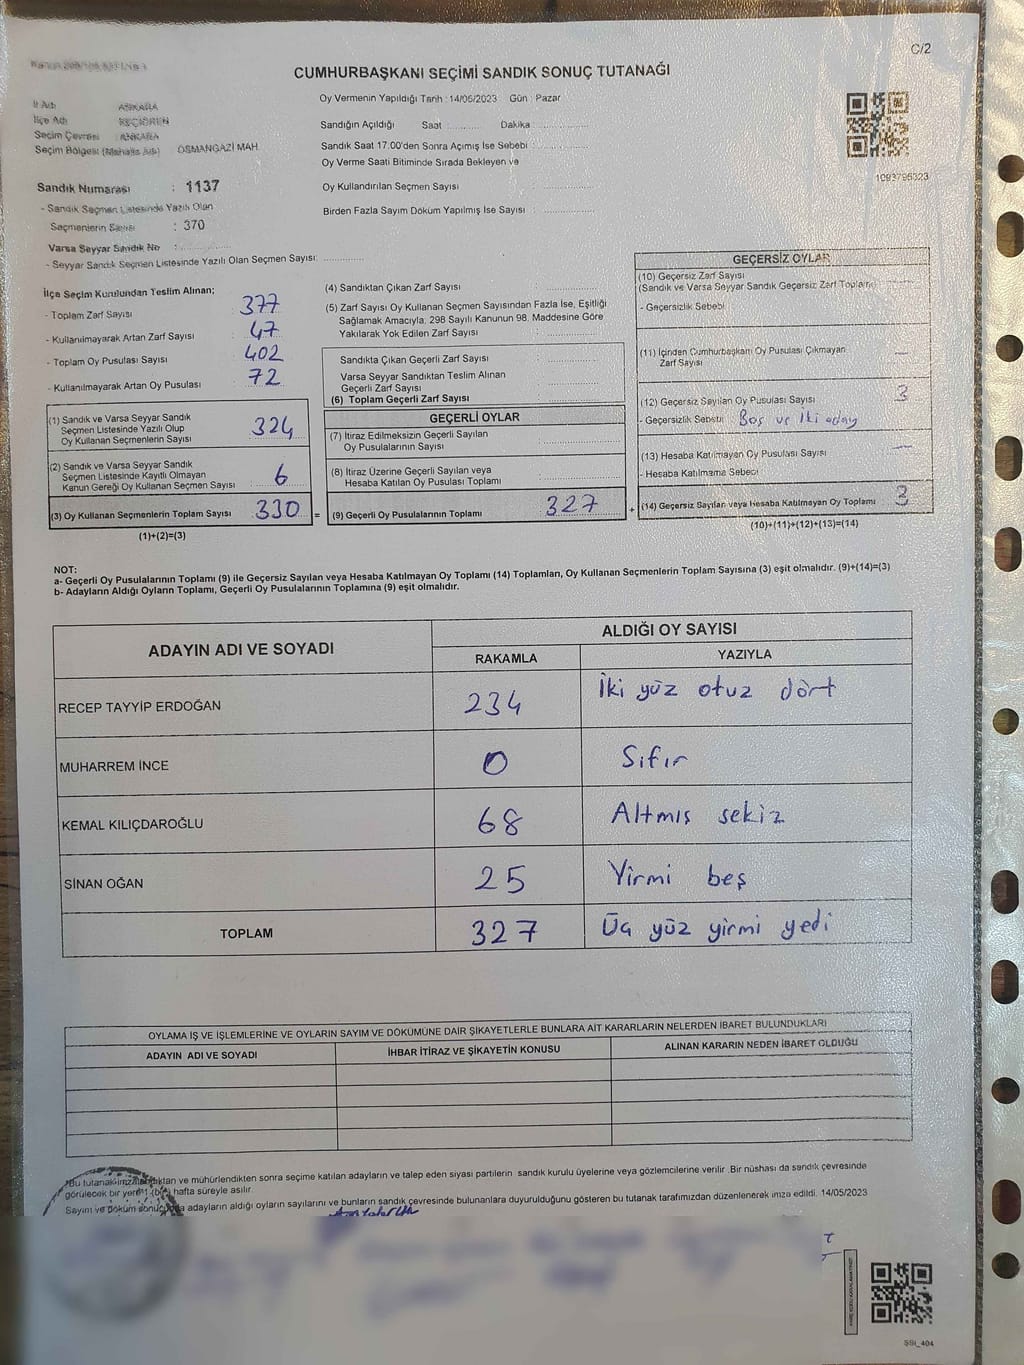 C/2
CUMHURBAŞKANI SEÇİMİ SANDIK SONUÇ TUTANAĞI
İl Adı ANKARA
İlçe Adı KEÇİÖREN
Seçim Çevresi ANKARA
Seçim Bölgesi (Mahalle Adı) OSMANGAZİ MAH.
Sandık Numarası : 1137
- Sandık Seçmen Listesinde Yazılı Olan
Seçmenlerin Sayısı : 370
Varsa Seyyar Sandık No :
- Seyyar Sandık Seçmen Listesinde Yazılı Olan Seçmen Sayısı:
Oy Vermenin Yapıldığı Tarih : 14/05/2023 Gün : Pazar
Sandığın Açıldığı Saat Dakika
Sandık Saat 17:00'den Sonra Açımış İse Sebebi :
Oy Verme Saati Bitiminde Sırada Bekleyen ve
Oy Kullandırılan Seçmen Sayısı :
Birden Fazla Sayım Döküm Yapılmış İse Sayısı :
1093796323
İlçe Seçim Kurulundan Teslim Alınan;
- Toplam Zarf Sayısı : 377
- Kullanılmayarak Artan Zarf Sayısı : 47
- Toplam Oy Pusulası Sayısı : 402
- Kullanılmayarak Artan Oy Pusulası : 72
(1) Sandık ve Varsa Seyyar Sandık
Seçmen Listesinde Yazılı Olup
Oy Kullanan Seçmenlerin Sayısı 324
(2) Sandık ve Varsa Seyyar Sandık
Seçmen Listesinde Kayıtlı Olmayan
Kanun Gereği Oy Kullanan Seçmen Sayısı 6
(3) Oy Kullanan Seçmenlerin Toplam Sayısı 330 =
(1)+(2)=(3)
(4) Sandıktan Çıkan Zarf Sayısı :
(5) Zarf Sayısı Oy Kullanan Seçmen Sayısından Fazla İse, Eşitliği
Sağlamak Amacıyla, 298 Sayılı Kanunun 98. Maddesine Göre
Yakılarak Yok Edilen Zarf Sayısı :
Sandıkta Çıkan Geçerli Zarf Sayısı :
Varsa Seyyar Sandıktan Teslim Alınan
Geçerli Zarf Sayısı :
(6) Toplam Geçerli Zarf Sayısı :
GEÇERLİ OYLAR
(7) İtiraz Edilmeksizin Geçerli Sayılan
Oy Pusulalarının Sayısı
(8) İtiraz Üzerine Geçerli Sayılan veya
Hesaba Katılan Oy Pusulası Toplamı
(9) Geçerli Oy Pusulalarının Toplamı 327 +
GEÇERSİZ OYLAR
(10) Geçersiz Zarf Sayısı
(Sandık ve Varsa Seyyar Sandık Geçersiz Zarf Toplamı)
- Geçersizlik Sebebi
(11) İçinden Cumhurbaşkanı Oy Pusulası Çıkmayan
Zarf Sayısı —
(12) Geçersiz Sayılan Oy Pusulası Sayısı 3
- Geçersizlik Sebebi Boş ve İki aday
(13) Hesaba Katılmayan Oy Pusulası Sayısı —
- Hesaba Katılmama Sebebi
(14) Geçersiz Sayılan veya Hesaba Katılmayan Oy Toplamı 3
(10)+(11)+(12)+(13)=(14)
NOT:
a- Geçerli Oy Pusulalarının Toplamı (9) ile Geçersiz Sayılan veya Hesaba Katılmayan Oy Toplamı (14) Toplamları, Oy Kullanan Seçmenlerin Toplam Sayısına (3) eşit olmalıdır. (9)+(14)=(3)
b- Adayların Aldığı Oyların Toplamı, Geçerli Oy Pusulalarının Toplamına (9) eşit olmalıdır.
ADAYIN ADI VE SOYADI ALDIĞI OY SAYISI
RAKAMLA YAZIYLA
RECEP TAYYİP ERDOĞAN 234 İki yüz otuz dört
MUHARREM İNCE 0 Sıfır
KEMAL KILIÇDAROĞLU 68 Altmış sekiz
SİNAN OĞAN 25 Yirmi beş
TOPLAM 327 Üç yüz yirmi yedi
OYLAMA İŞ VE İŞLEMLERİNE VE OYLARIN SAYIM VE DÖKÜMÜNE DAİR ŞİKAYETLERLE BUNLARA AİT KARARLARIN NELERDEN İBARET BULUNDUKLARI
ADAYIN ADI VE SOYADI İHBAR İTİRAZ VE ŞİKAYETİN KONUSU ALINAN KARARIN NEDEN İBARET OLDUĞU
Bu tutanak ve mühürlendikten sonra seçime katılan adayların ve talep eden siyasi partilerin sandık kurulu üyelerine veya gözlemcilerine verilir. Bir nüshası da sandık çevresinde
görülecek bir yere 1 (bir) hafta süreyle asılır.
Sayım ve döküm adayların aldığı oyların sayılarını ve bunların sandık çevresinde bulunanlara duyurulduğunu gösteren bu tutanak tarafımızdan düzenlenerek imza edildi. 14/05/2023
SSI_404